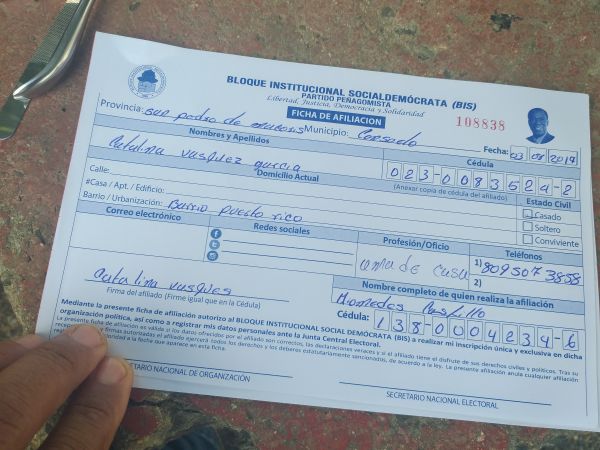 BLOQUE INSTITUCIONAL SOCIALDEMÓCRATA (BIS)
PARTIDO PEÑAGOMISTA
Libertad, Justicia, Democracia y Solidaridad
FICHA DE AFILIACION
108838
Provincia: San pedro de Municipio: Consuelo Fecha: 03 08 2019
Nombres y Apellidos
Cédula
Catalina vasquez garcia
023-0083524-2
(Anexar copia de cédula del afiliado)
*Domicilio Actual
Estado Civil
Calle:
Casado
#Casa / Apt. / Edificio:
Soltero
Barrio / Urbanización: Barrio puerto rico
Conviviente
Correo electrónico
Redes sociales
Profesión/Oficio
Teléfonos
ama de casa
1) 809 507 3858
2)
Catalina vasques
Firma del afiliado (Firme igual que en la Cédula)
Nombre completo de quien realiza la afiliación
Cédula: 138-0004234-6
Mediante la presente ficha de afiliación autorizo al BLOQUE INSTITUCIONAL SOCIAL DEMÓCRATA (BIS) a realizar mi inscripción única y exclusiva en dicha
organización política, así como a registrar mis datos personales ante la Junta Central Electoral.
La presente ficha de afiliación es válida si los datos ofrecidos por el afiliado son correctos, las declaraciones veraces y si el afiliado tiene el disfrute de sus derechos civiles y políticos. Tras su
y firmas autorizadas el afiliado ejercerá todos los derechos y los deberes estatutariamente sancionados, de acuerdo a la ley. La presente afiliación anula cualquier afiliación
a la fecha que aparece en esta ficha.
SECRETARIO NACIONAL DE ORGANIZACIÓN
SECRETARIO NACIONAL ELECTORAL